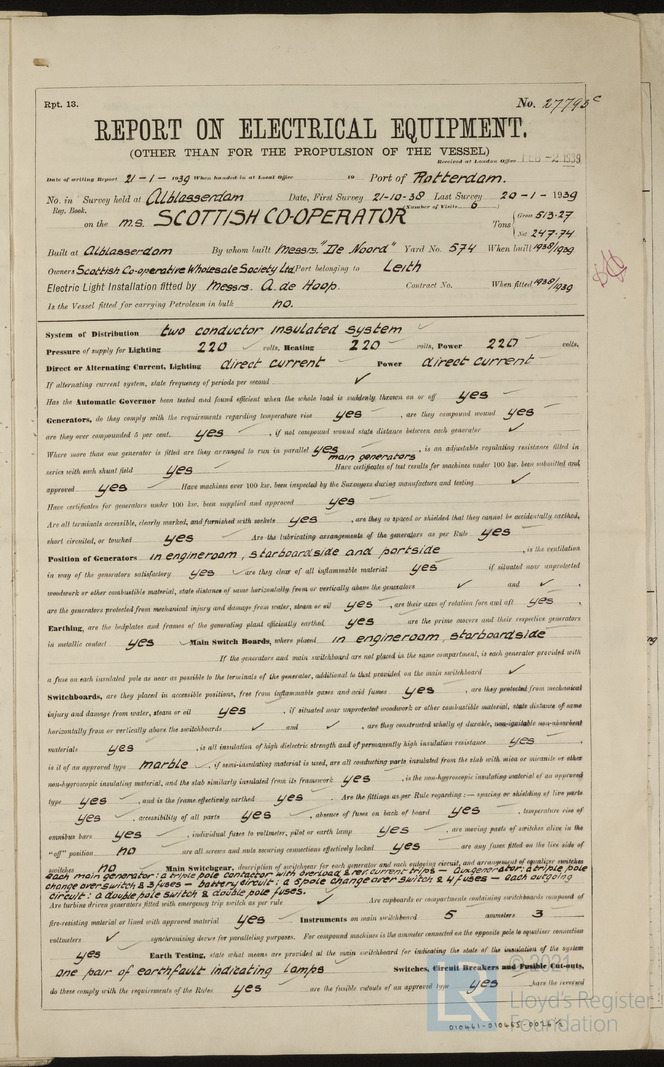 Rpt. 13.
No. 27795c
REPORT ON ELECTRICAL EQUIPMENT.
(OTHER THAN FOR THE PROPULSION OF THE VESSEL)
Received at London Office FEB -2 1939
Date of writing Report 21-1- 1939 When handed in at Local Office 19 Port of Rotterdam.
No. in Survey held at Alblasserdam Date, First Survey 21-10-38 Last Survey 20-1- 1939
Reg. Book. (Number of Visits 6
on the m.s. SCOTTISH CO-OPERATOR Tons { Gross 513.27
Net 247.74
Built at Alblasserdam By whom built Messrs. "De Noord" Yard No. 574 When built 1938/1939
Owners Scottish Co-operative Wholesale Society Ltd Port belonging to Leith
Electric Light Installation fitted by Messrs. A. de Hoop. Contract No. When fitted 1938/1939
Is the Vessel fitted for carrying Petroleum in bulk no.
System of Distribution two conductor insulated system
Pressure of supply for Lighting 220 volts, Heating 220 volts, Power 220 volts.
Direct or Alternating Current, Lighting direct current Power direct current
If alternating current system, state frequency of periods per second ✓
Has the Automatic Governor been tested and found efficient when the whole load is suddenly thrown on or off yes
Generators, do they comply with the requirements regarding temperature rise yes, are they compound wound yes
are they over compounded 5 per cent. yes, if not compound wound state distance between each generator ✓
Where more than one generator is fitted are they arranged to run in parallel yes main generators, is an adjustable regulating resistance fitted in
series with each shunt field yes Have certificates of test results for machines under 100 kw. been submitted and
approved yes Have machines over 100 kw. been inspected by the Surveyors during manufacture and testing ✓
Have certificates for generators under 100 kw. been supplied and approved yes
Are all terminals accessible, clearly marked, and furnished with sockets yes, are they so spaced or shielded that they cannot be accidentally earthed,
short circuited, or touched yes Are the lubricating arrangements of the generators as per Rule yes
Position of Generators in engineroom, starboardside and portside, is the ventilation
in way of the generators satisfactory yes are they clear of all inflammable material yes if situated near unprotected
woodwork or other combustible material, state distance of same horizontally from or vertically above the generators ✓ and ✓,
are the generators protected from mechanical injury and damage from water, steam or oil yes, are their axes of rotation fore and aft yes,
Earthing, are the bedplates and frames of the generating plant efficiently earthed yes are the prime movers and their respective generators
in metallic contact yes Main Switch Boards, where placed in engineroom, starboardside
If the generators and main switchboard are not placed in the same compartment, is each generator provided with
a fuse on each insulated pole as near as possible to the terminals of the generator, additional to that provided on the main switchboard ✓
Switchboards, are they placed in accessible positions, free from inflammable gases and acid fumes yes, are they protected from mechanical
injury and damage from water, steam or oil yes, if situated near unprotected woodwork or other combustible material, state distance of same
horizontally from or vertically above the switchboards ✓ and ✓, are they constructed wholly of durable, non-ignitable non-absorbent
materials yes, is all insulation of high dielectric strength and of permanently high insulation resistance yes,
is it of an approved type marble, if semi-insulating material is used, are all conducting parts insulated from the slab with mica or micanite or other
non-hygroscopic insulating material, and the slab similarly insulated from its framework yes, is the non-hygroscopic insulating material of an approved
type yes, and is the frame effectively earthed yes Are the fittings as per Rule regarding :— spacing or shielding of live parts
yes, accessibility of all parts yes, absence of fuses on back of board yes, temperature rise of
omnibus bars yes, individual fuses to voltmeter, pilot or earth lamp yes, are moving parts of switches alive in the
"off" position no are all screws and nuts securing connections effectively locked yes are any fuses fitted on the live side of
switches no Main Switchgear, description of switchgear for each generator and each outgoing circuit, and arrangement of equalizer switches
each main generator: a triple pole contactor with overload & rev. current trips — Aux generator: a triple pole
change over switch & 3 fuses — battery circuit: a 3 pole change over switch & 4 fuses — each outgoing
circuit: a double pole switch & double pole fuses.
Are turbine driven generators fitted with emergency trip switch as per rule ✓ Are cupboards or compartments containing switchboards composed of
fire-resisting material or lined with approved material yes Instruments on main switchboard 5 ammeters 3
voltmeters ✓ synchronising device for paralleling purposes. For compound machines is the ammeter connected on the opposite pole to equaliser connection
yes Earth Testing, state what means are provided at the main switchboard for indicating the state of the insulation of the system
one pair of earthfault indicating lamps Switches, Circuit Breakers and Fusible Cut-outs,
do these comply with the requirements of the Rules yes are the fusible cutouts of an approved type yes, have the reversed
© 2021
LR
Lloyd's Register
Foundation
010461-010465-0026 ½